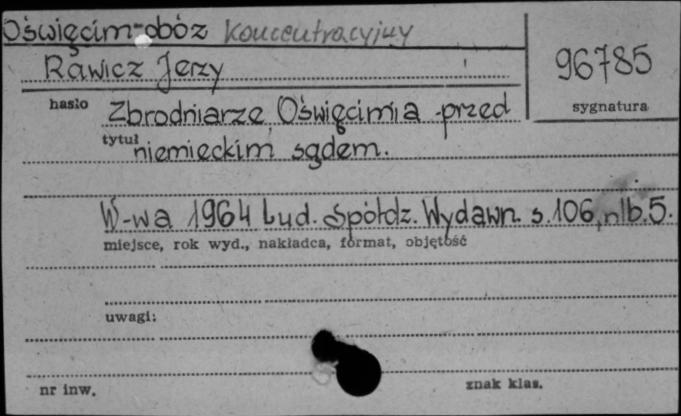 Oświęcim-obóz koncentracyjny
Rawicz Jerzy
96785
hasło
sygnatura
Zbrodniarze Oświęcimia przed
tytuł
niemieckim sądem.
W-wa 1964 Lud. Spółdz. Wydawn. s.106, nlb.5.
miejsce, rok wyd., nakładca, format, objętość
uwagi:
nr inw.
znak klas.